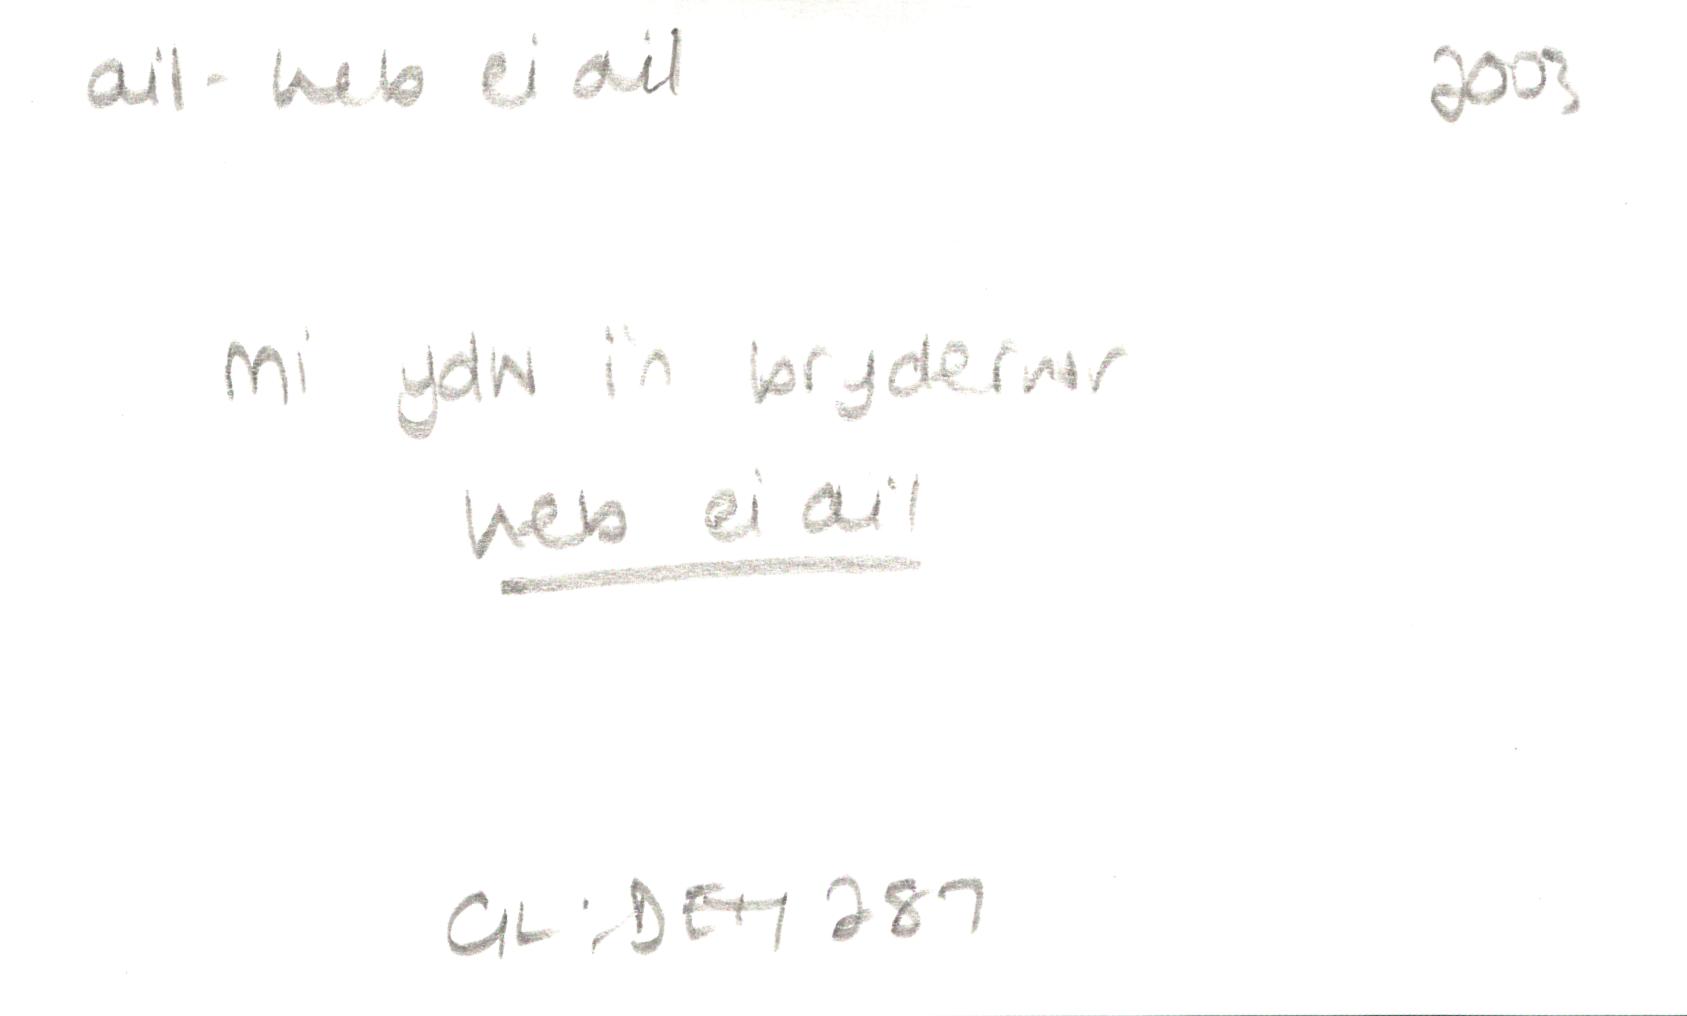 ail - heb ei ail 2003
mi ydw i'n bryderwr
heb ei ail
GL:DEH 287